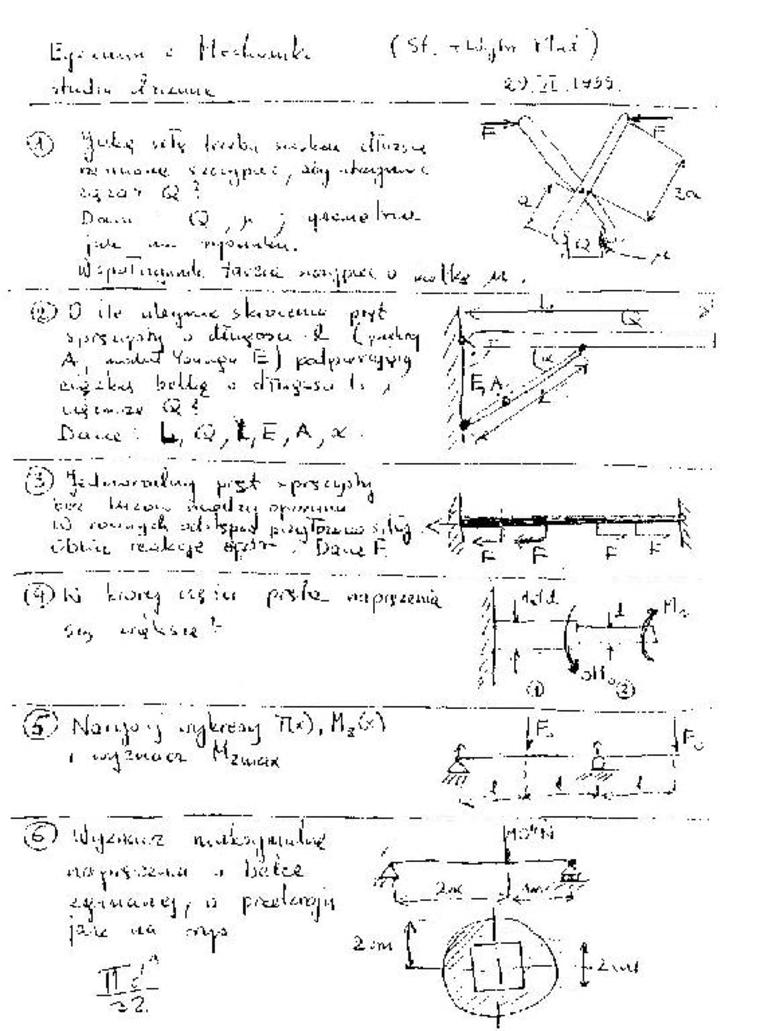 Egzamin z Mechaniki (St. + Wydz. )
studia dzienne 29.VI.1999.
① Jaką siłą trzeba ścisnąć dłuższe
ramiona szczypiec, aby utrzymać
ciężar Q?
Dane: Q, μ; geometria
jak na rysunku.
Współczynnik tarcia szczypiec o kostkę μ.
F F
a 3a
Q μ
② O ile ulegnie skróceniu pręt
sprężysty o długości l (przekrój
A, moduł Younga E) podpierający
ciężką belkę o długości L i
ciężarze Q?
Dane: L, Q, l, E, A, α.
L
Q
α
E, A
l
③ Jednorodny pręt sprężysty
bez luzów między oporami
W równych odstępach przyłożono siły
Oblicz reakcje opór. Dane F
F F F F
④ W której części pręta naprężenia
są większe?
d M₀
① ②
⑤ Narysuj wykresy T(x), M₂(x)
i wyznacz M₂max
F₀ F₀
l l l
⑥ Wyznacz maksymalne
naprężenia w belce
zginanej, o przekroju
jak na rys
2m 1m
2 cm 2 cm
32